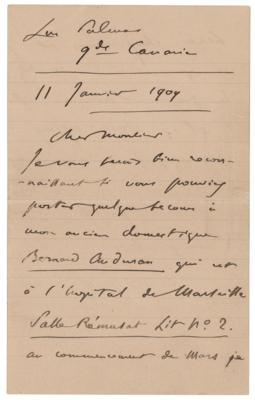 Las Palmas
gde Canarie
11 Janvier 1909
Cher Monsieur
Je vous serais bien recon-
naissant si vous pouviez
porter quelque secours à
mon ancien domestique
Bernard qui est
à l'hopital de Marseille
Salle Rémusat Lit No 2.
au commencement de Mars je